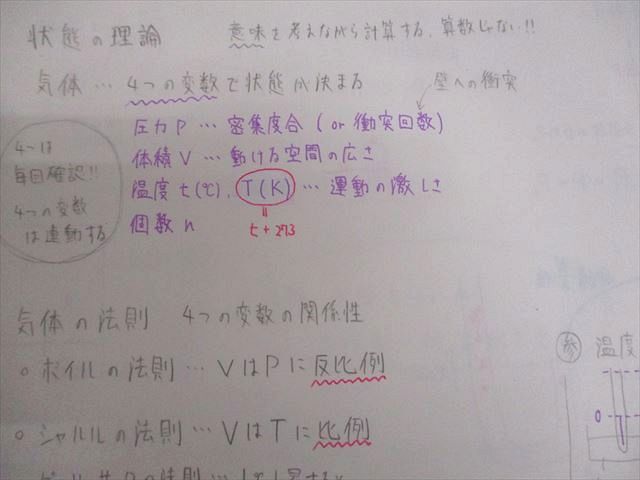 状態の理論 意味を考えながら計算する、算数じゃない!!
気体… 4つの変数で状態が決まる 壁への衝突
圧力P … 密集度合 (or 衝突回数)
体積V … 動ける空間の広さ
温度t(℃), T(K) … 運動の激しさ
= t+273
個数n
4〜は
毎回確認!!
4つの変数
は連動する
気体の法則 4つの変数の関係性
○ボイルの法則… VはPに反比例
○シャルルの法則… VはTに比例
参 温度
0